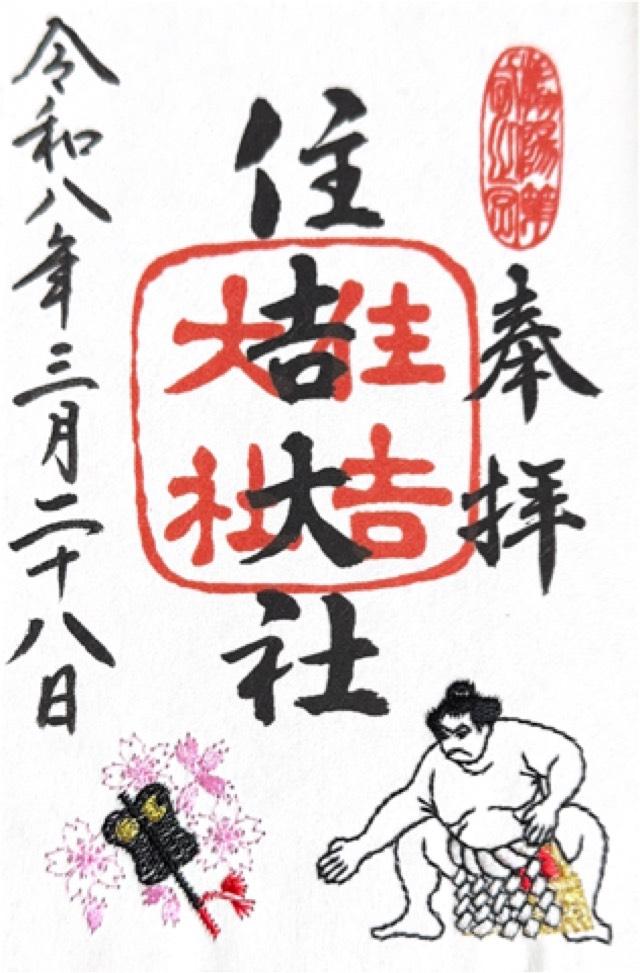 奉拝
住吉大社
住吉
大社
令和八年三月二十八日